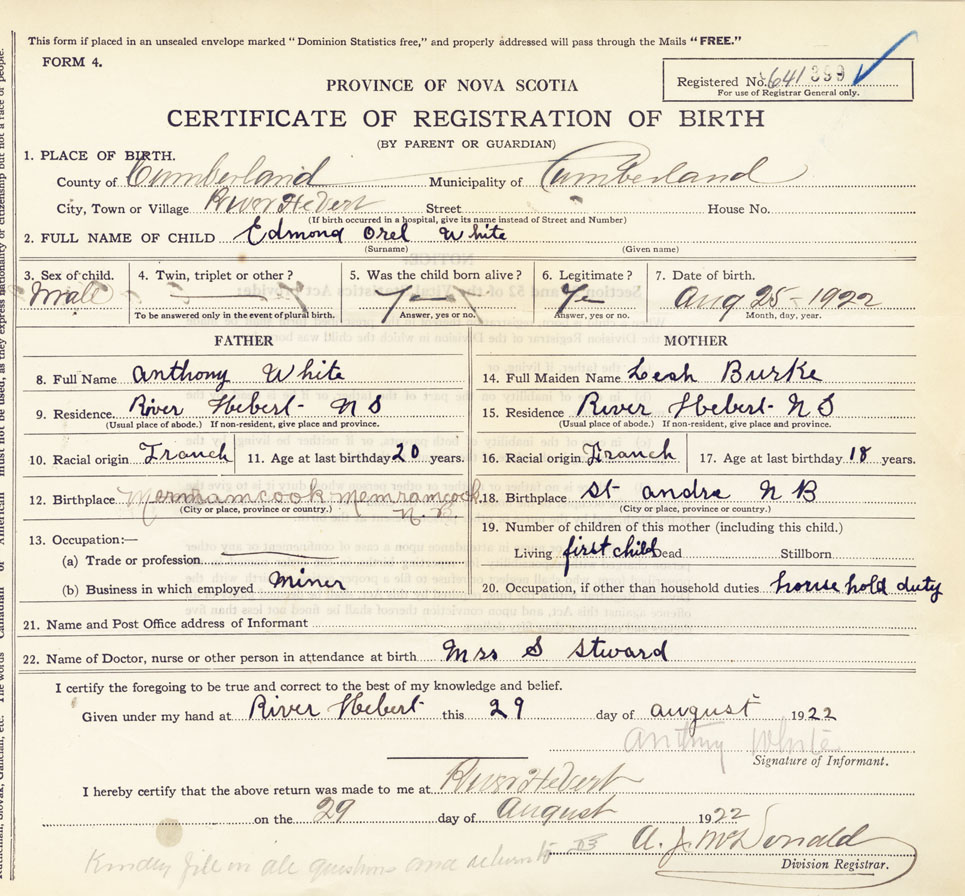 This form if placed in an unsealed envelope marked "Dominion Statistics free," and properly addressed will pass through the Mails "FREE."
FORM 4.
Registered No. 641399
For use of Registrar General only.
PROVINCE OF NOVA SCOTIA
CERTIFICATE OF REGISTRATION OF BIRTH
(BY PARENT OR GUARDIAN)
1. PLACE OF BIRTH.
County of Cumberland Municipality of Cumberland
City, Town or Village River Hebert Street House No.
(If birth occurred in a hospital, give its name instead of Street and Number)
2. FULL NAME OF CHILD Edmond Orel White
(Surname) (Given name)
3. Sex of child. 4. Twin, triplet or other? 5. Was the child born alive? 6. Legitimate? 7. Date of birth.
Male Yes Ye Aug 25 - 1922
To be answered only in the event of plural birth. Answer, yes or no. Answer, yes or no. Month, day, year.
FATHER MOTHER
8. Full Name Anthony White 14. Full Maiden Name Leah Burke
9. Residence. River Hebert - N S 15. Residence River Hebert - N S
(Usual place of abode.) If non-resident, give place and province. (Usual place of abode.) If non-resident, give place and province.
10. Racial origin Franch 11. Age at last birthday 20 years. 16. Racial origin Franch 17. Age at last birthday 18 years.
12. Birthplace Memramcook N.B. 18. Birthplace St- andre N B
(City or place, province or country.) (City or place, province or country.)
19. Number of children of this mother (including this child.)
13. Occupation:—
Living first child Dead Stillborn
(a) Trade or profession.
(b) Business in which employed miner 20. Occupation, if other than household duties house hold duty
21. Name and Post Office address of Informant
22. Name of Doctor, nurse or other person in attendance at birth Mrs S Stward
I certify the foregoing to be true and correct to the best of my knowledge and belief.
Given under my hand at River Hebert this 29 day of august 1922
Anthny White
Signature of Informant.
I hereby certify that the above return was made to me at River Hebert
on the 29 day of August 1922
A. J. McDonald
Division Registrar.
Kindly fill in all questions and return to